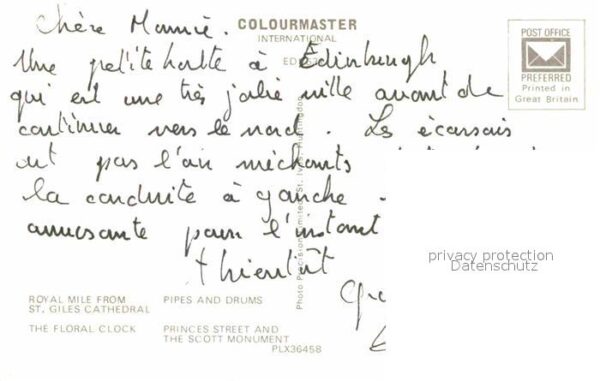 Chère Mamie.
COLOURMASTER
INTERNATIONAL
Une petite halte à Edinburgh
qui est une très jolie ville avant de
continuer vers le nord. Les écossais
ont pas l'air méchants
la conduite à gauche
amusante pour l'instant
A bientôt
POST OFFICE
PREFERRED
Printed in
Great Britain
Photo Precision Limited, St. Ives, Huntingdon
privacy protection
Datenschutz
ROYAL MILE FROM
ST. GILES CATHEDRAL
PIPES AND DRUMS
THE FLORAL CLOCK
PRINCES STREET AND
THE SCOTT MONUMENT
PLX36458